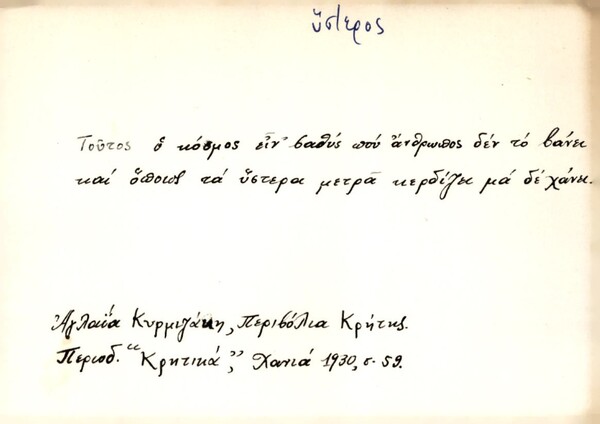 ὕστερος
Τοῦτος ὁ κόσμος εἶν' σαθύς πού ἄνθρωπος δέν τό βάνει
καί ὅποιος τά ὕστερα μετρᾶ κερδίζει μά δέ χάνει.
Ἀγλαΐα Κυρμιζάκη, Περιβόλια Κρήτης.
Περιοδ. "Κρητικά", Χανιά 1930, σ. 59.